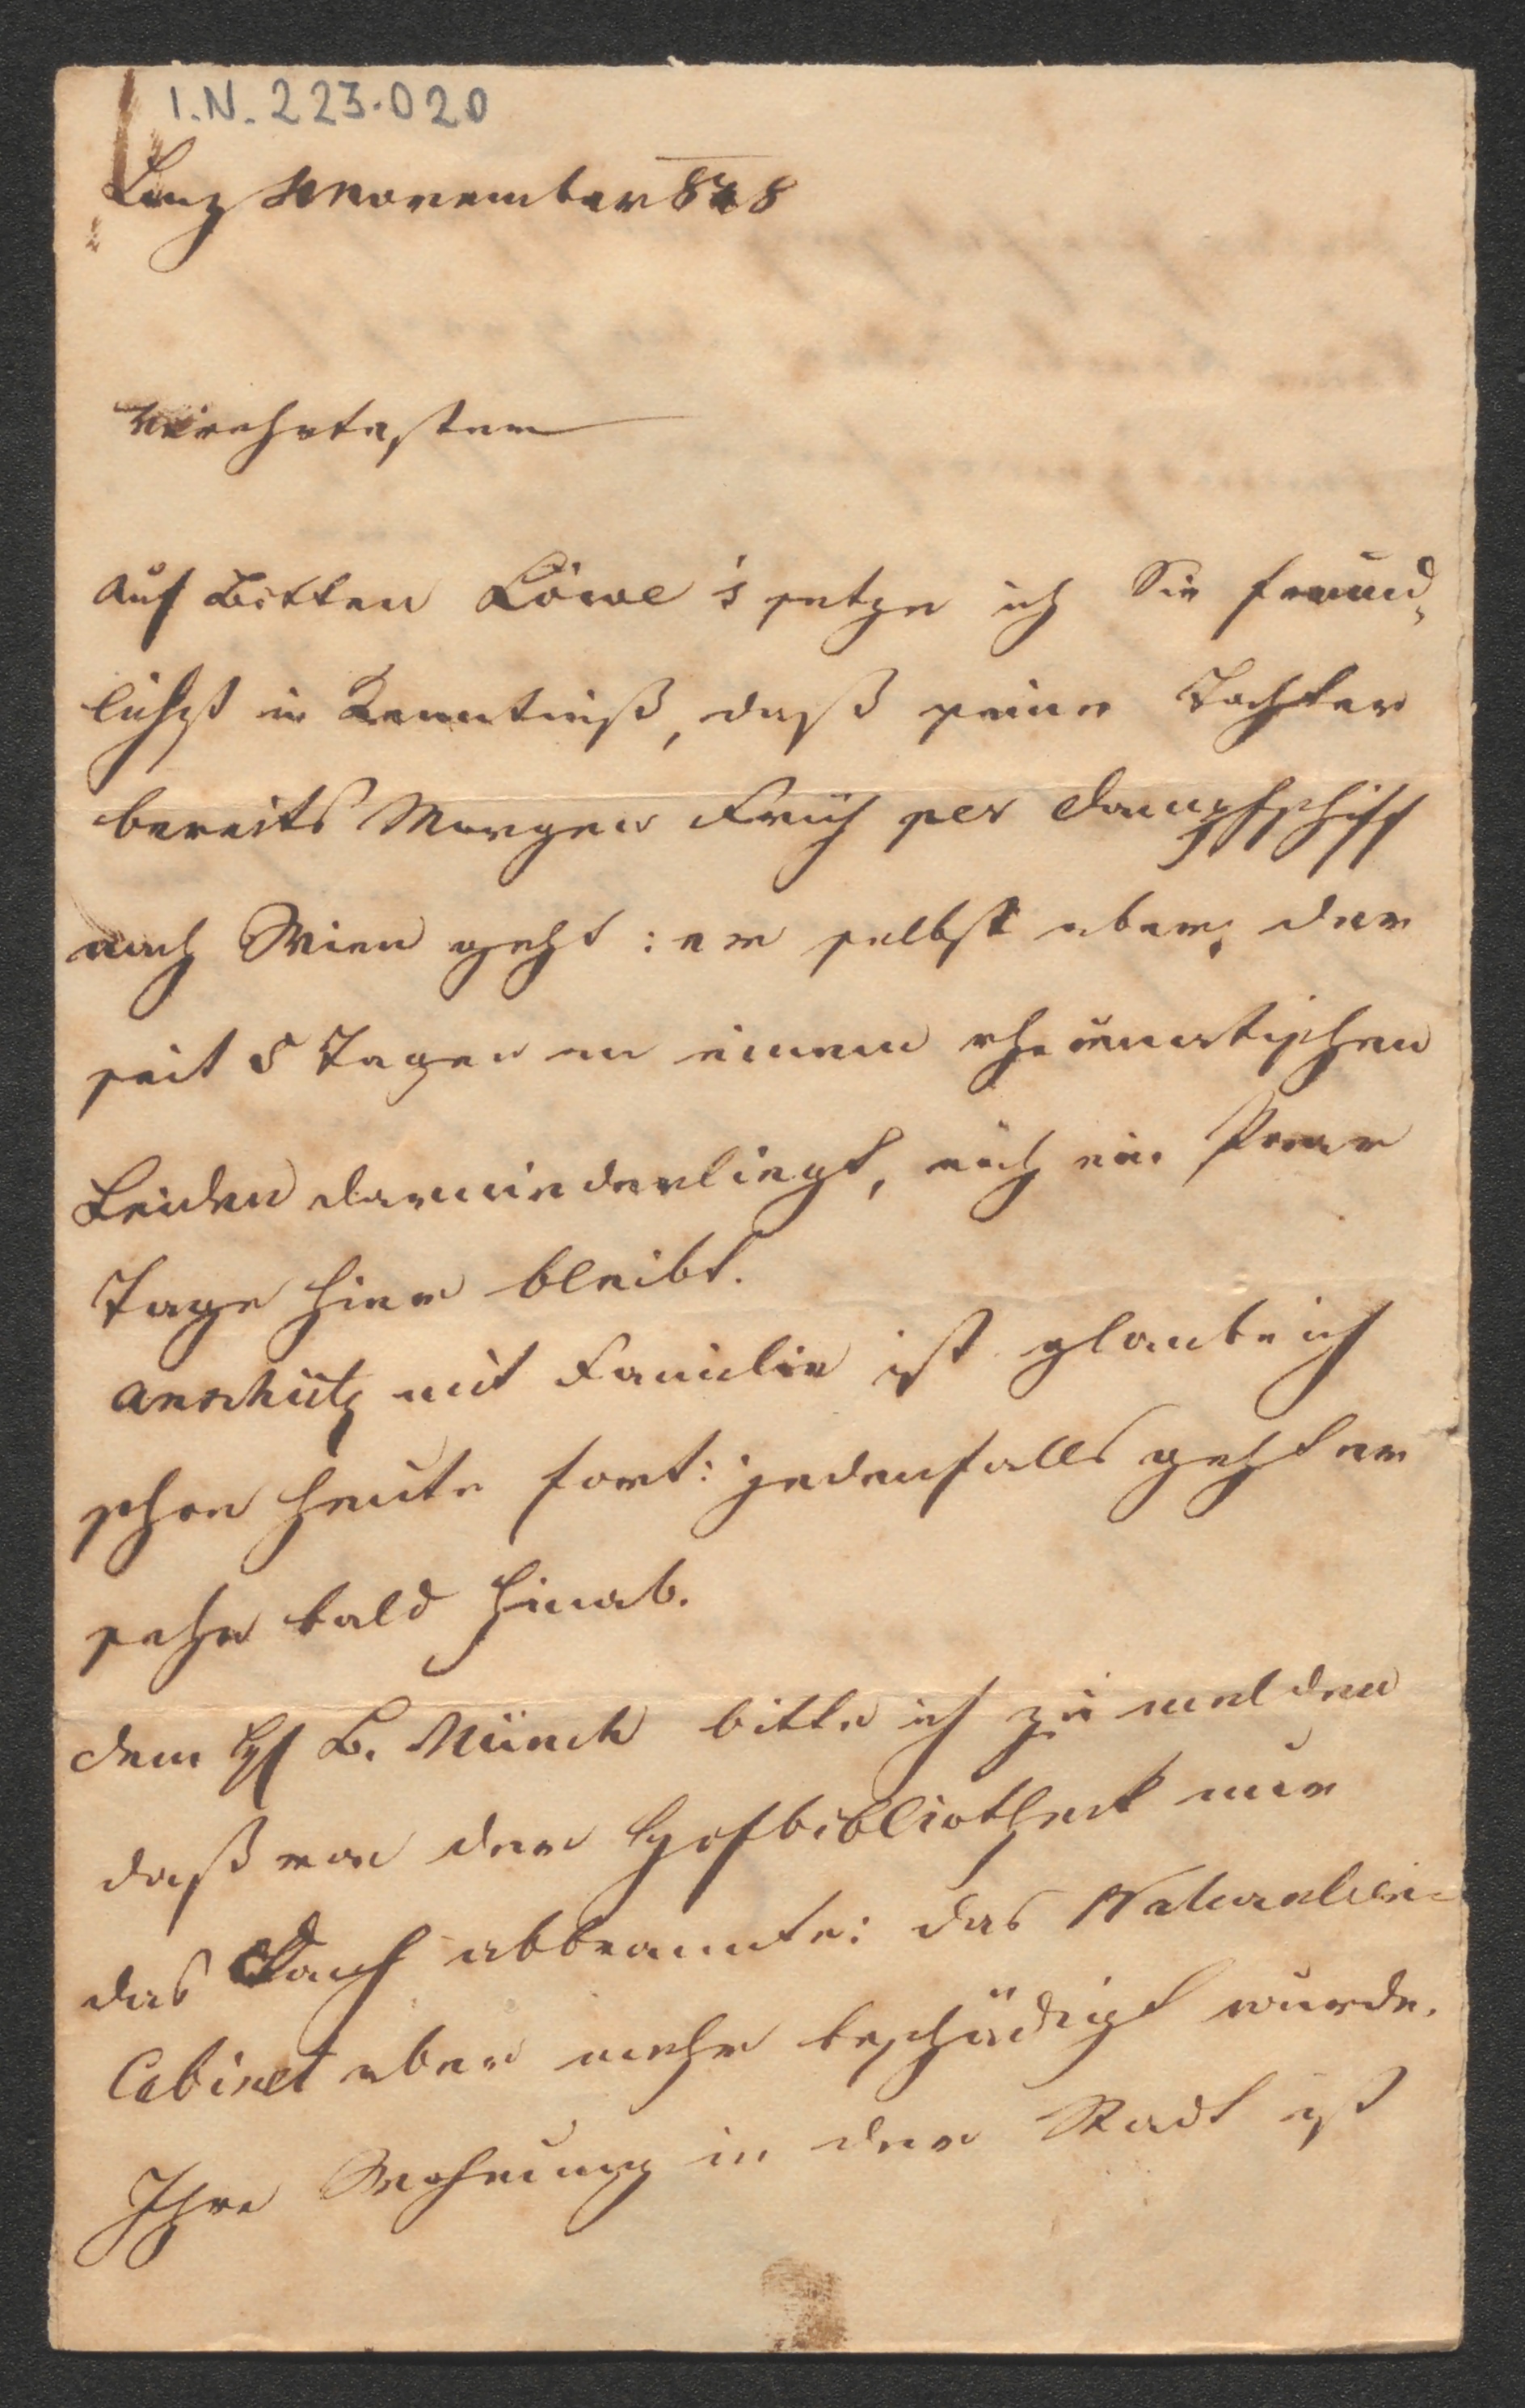 I.N. 223.020
Linz November 848
Verehrtester
Auf Bitten Löwe's setze ich Sie freund-
lichst in Kenntniß, daß seine Tochter
bereits Morgen Früh per Dampfschiff
nach Wien geht: er selbst aber, der
seit 5 Tagen an einem rheumatischen
Leiden darniederliegt, noch ein Paar
Tage hier bleibt.
Anschütz mit Familie ist glaube ich
schon heute fort: jedenfalls geht er
sehr bald hinab.
dem H B. Münch bitte ich zu melden
daß von der Hofbibliothek nur
das Dach abbrannte: das Naturalien-
Cabinet aber mehr beschädigt wurde.
Ihre Wohnung in der Stadt ist